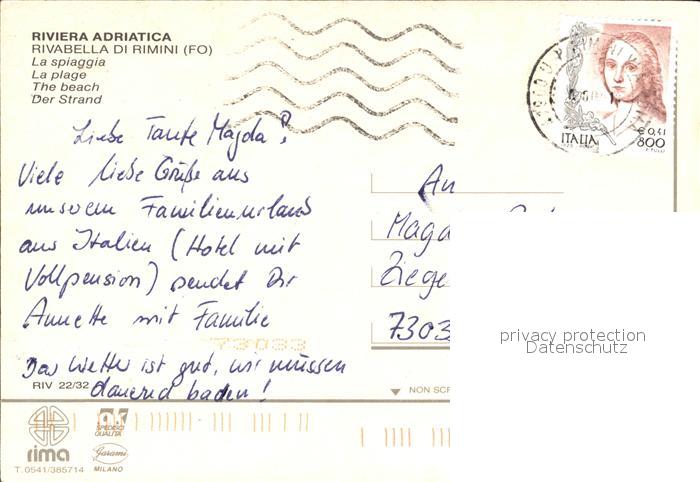 RIVIERA ADRIATICA
RIVABELLA DI RIMINI (FO)
La spiaggia
La plage
The beach
Der Strand
Liebe Tante Magda!
Viele liebe Grüße aus
unserem Familienurlaub
aus Italien (Hotel mit
Vollpension) sendet Dir
Annette mit Familie
73033
Das Wetter ist gut, wir müssen
dauernd baden!
RIV 22/32
rima
T. 0541/385714
OK
SPEDISCI
QUALITÀ
Garami
MILANO
ITALIA
€ 0,41
800
An
Magda
Ziege
7303
NON SCR
privacy protection
Datenschutz